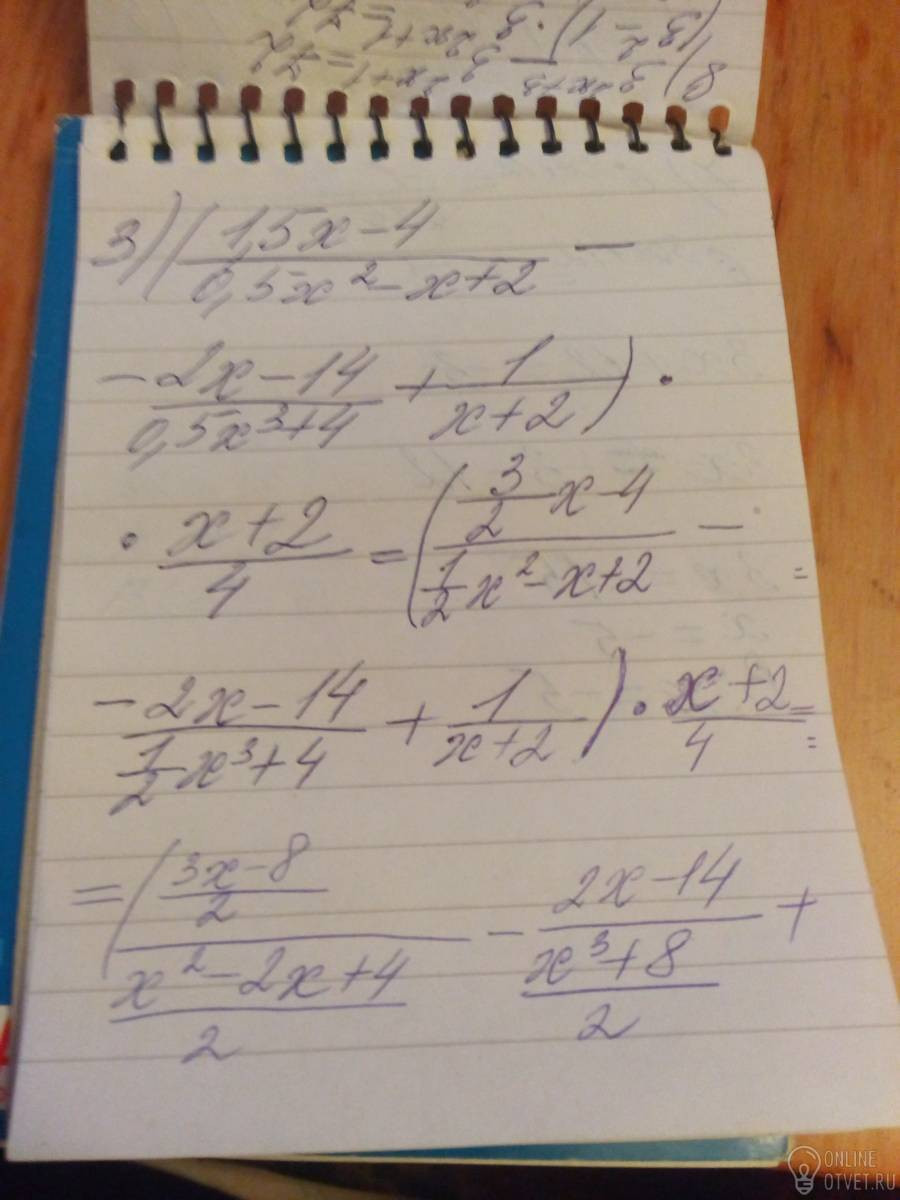 8) 3^{2x+3} - 3^{2x+1} = 72
3) ( \frac{1,5x-4}{0,5x^2-x+2} -
- \frac{2x-14}{0,5x^3+4} + \frac{1}{x+2} ) ·
· \frac{x+2}{4} = ( \frac{\frac{3}{2}x-4}{\frac{1}{2}x^2-x+2} - =
- \frac{2x-14}{\frac{1}{2}x^3+4} + \frac{1}{x+2} ) · \frac{x+2}{4} =
= ( \frac{\frac{3x-8}{2}}{\frac{x^2-2x+4}{2}} - \frac{2x-14}{\frac{x^3+8}{2}} +
ONLINE
OTVET.RU